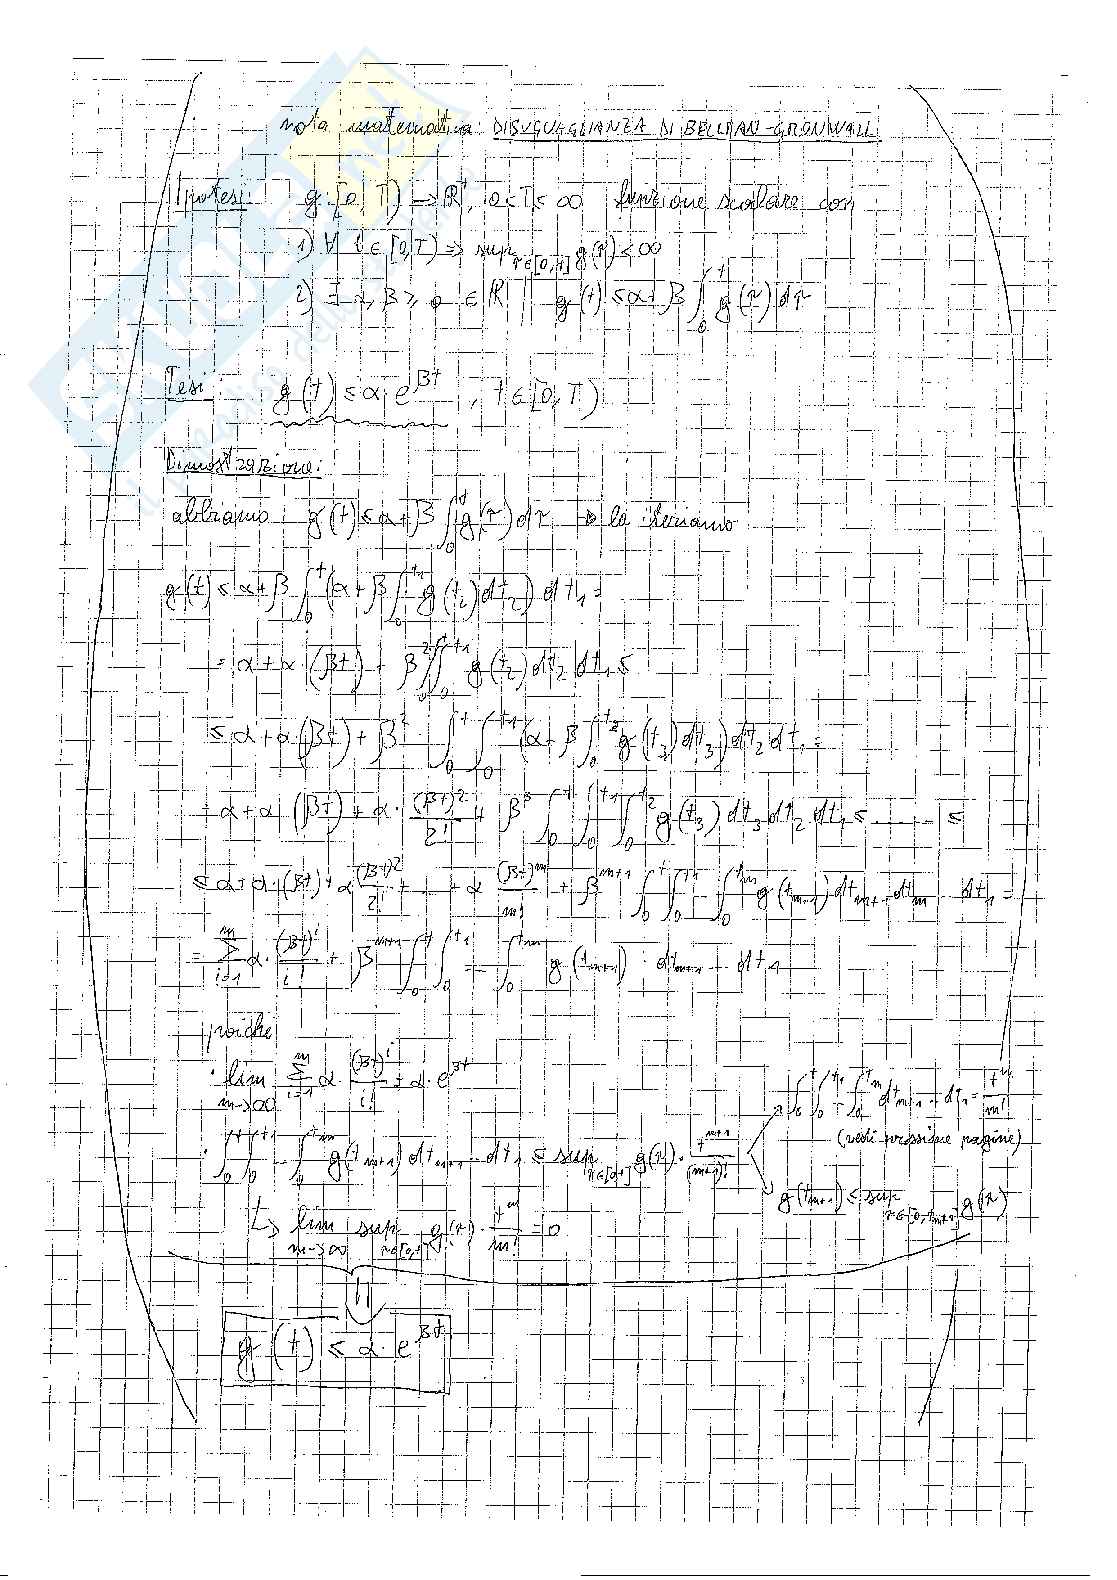 nota matematica: DISUGUAGLIANZA DI BELLMAN-GRONWALL
Ipotesi: g: [0,T) → ℝ¹, 0<T≤∞ funzione scalare con
1) ∀ t ∈ [0,T) ⇒ sup_{τ∈[0,t]} g(τ) < ∞
2) ∃ α, β ≥ 0 ∈ ℝ | g(t) ≤ α + β ∫₀ᵗ g(τ) dτ
Tesi: g(t) ≤ α · e^{βt}, t ∈ [0,T)
Dimostrazione:
abbiamo g(t) ≤ α + β ∫₀ᵗ g(τ) dτ → la iteriamo
g(t) ≤ α + β ∫₀ᵗ (α + β ∫₀^{t₁} g(t₂) dt₂) dt₁ =
= α + α (βt) + β² ∫₀ᵗ ∫₀^{t₁} g(t₂) dt₂ dt₁ ≤
≤ α + α (βt) + β² ∫₀ᵗ ∫₀^{t₁} (α + β ∫₀^{t₂} g(t₃) dt₃) dt₂ dt₁ =
= α + α (βt) + α · (βt)²/2! + β³ ∫₀ᵗ ∫₀^{t₁} ∫₀^{t₂} g(t₃) dt₃ dt₂ dt₁ ≤ ...... ≤
≤ α + α · (βt) + α (βt)²/2! + ... + α (βt)^m/m! + β^{m+1} ∫₀ᵗ ∫₀^{t₁} ... ∫₀^{t_m} g(t_{m+1}) dt_{m+1} dt_m ... dt₁ =
= Σ_{i=1}^{m} α · (βt)^i/i! + β^{m+1} ∫₀ᵗ ∫₀^{t₁} ... ∫₀^{t_m} g(t_{m+1}) · dt_{m+1} ... dt₁
poiché
· lim_{m→∞} Σ_{i=1}^{m} α · (βt)^i/i! = α · e^{βt}
∫₀ᵗ ∫₀^{t₁} ... ∫₀^{t_m} dt_{m+1} ... dt₁ = t^m/m!
(vedi prossime pagine)
· ∫₀ᵗ ∫₀^{t₁} ... ∫₀^{t_m} g(t_{m+1}) dt_{m+1} ... dt₁ ≤ sup_{τ∈[0,t]} g(τ) · t^{m+1}/(m+1)!
g(t_{m+1}) ≤ sup_{τ∈[0,t_{m+1}]} g(τ)
↳ lim_{m→∞} sup_{τ∈[0,t]} g(τ) · t^m/m! = 0
⇓
g(t) ≤ α · e^{βt}